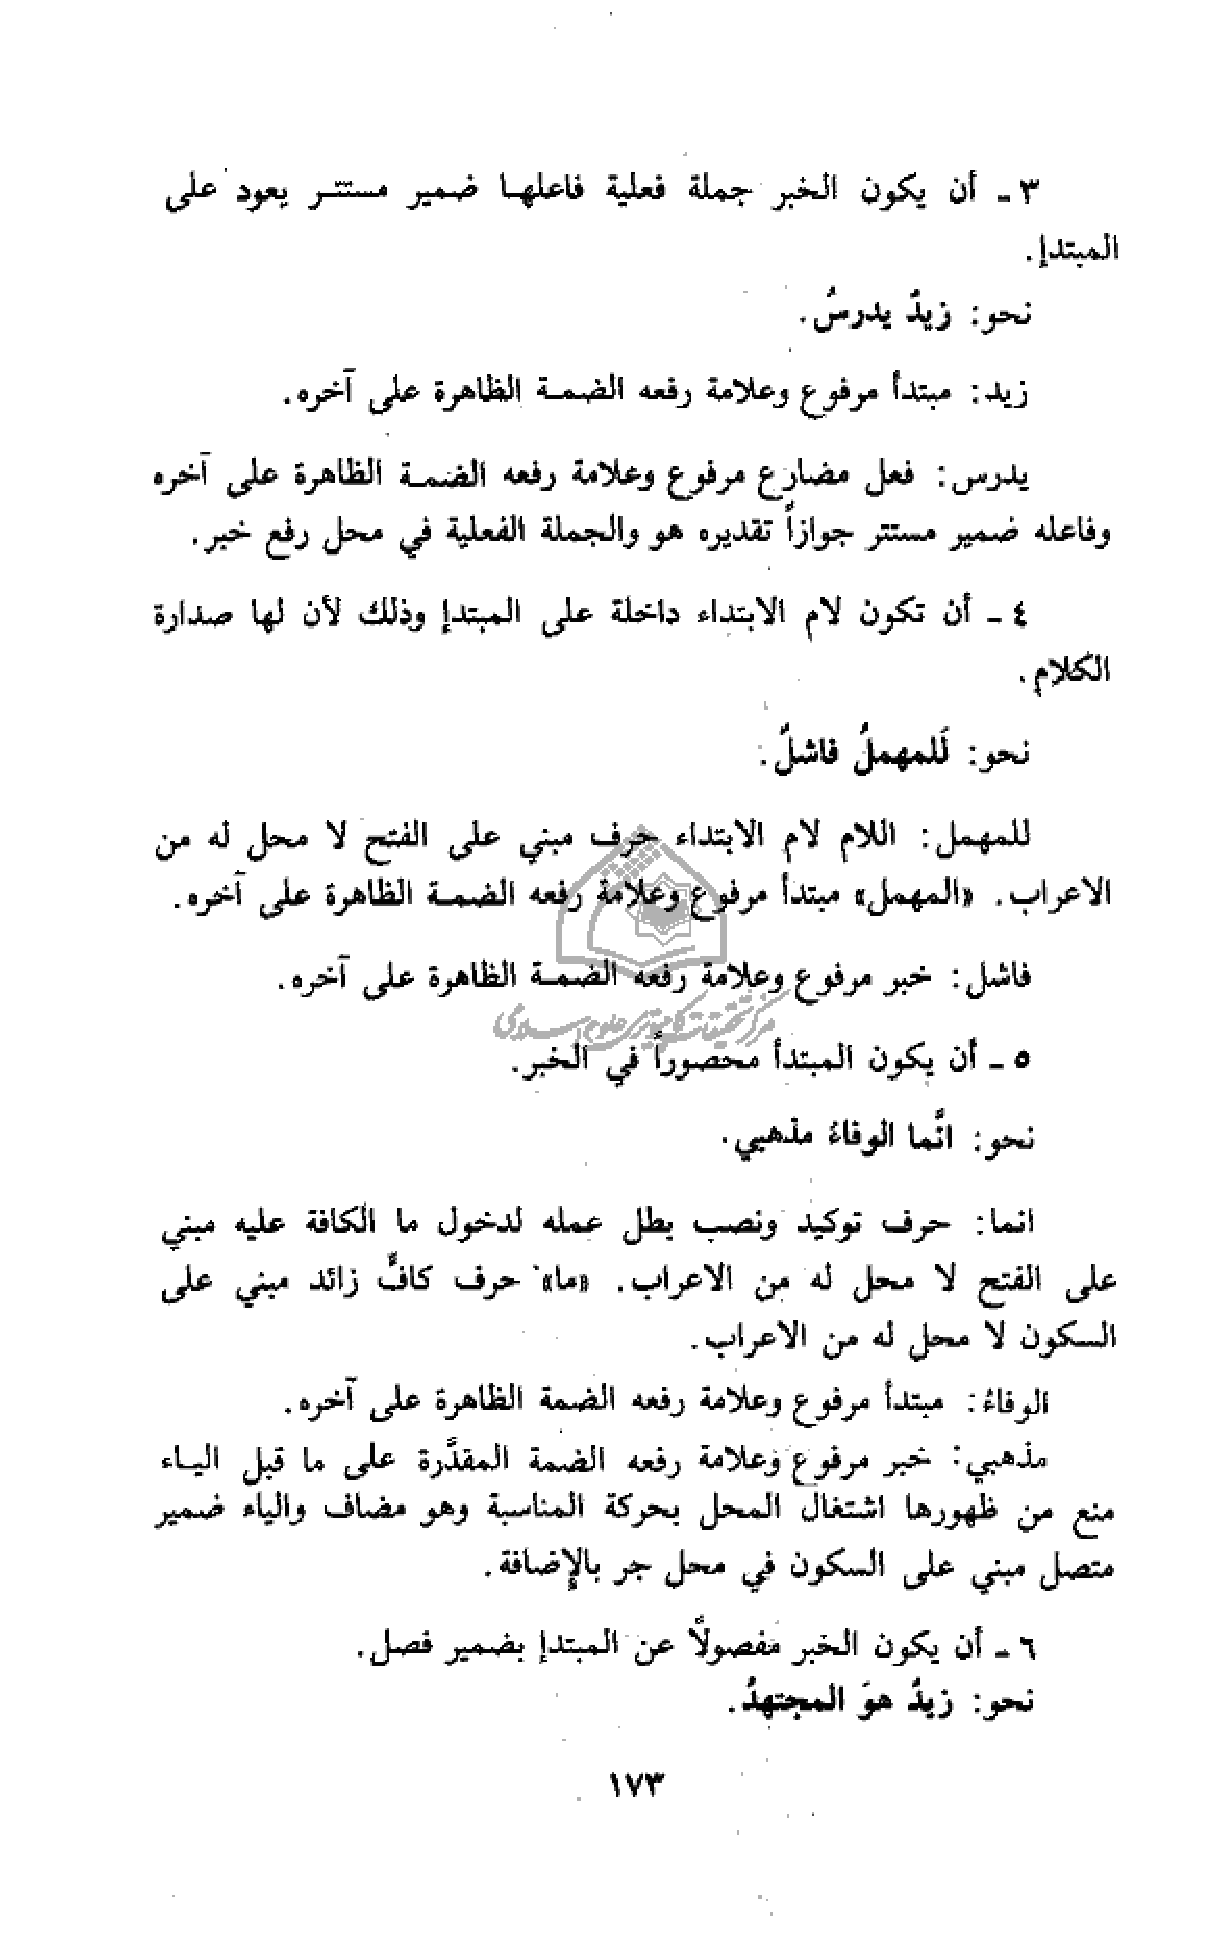 ٣ ـ أن يكون الخبر جملة فعلية فاعلهـا ضمير مستتـر يعود على
المبتدإ.
نحو: زيدٌ يدرسُ.
زيد: مبتدأ مرفوع وعلامة رفعه الضمـة الظاهرة على آخره.
يدرس: فعل مضارع مرفوع وعلامة رفعه الضمـة الظاهرة على آخره
وفاعله ضمير مستتر جوازاً تقديره هو والجملة الفعلية في محل رفع خبر.
٤ ـ أن تكون لام الابتداء داخلة على المبتدإ وذلك لأن لها صدارة
الكلام.
نحو: لَلمهملُ فاشلٌ.
للمهمل: اللام لام الابتداء حرف مبني على الفتح لا محل له من
الاعراب. «المهمل» مبتدأ مرفوع وعلامة رفعه الضمـة الظاهرة على آخره.
فاشل: خبر مرفوع وعلامة رفعه الضمـة الظاهرة على آخره.
مركز تحقيقات كامپيوتری علوم اسلامی
٥ ـ أن يكون المبتدأ محصوراً في الخبر.
نحو: انَّما الوفاءُ مذهبي.
انما: حرف توكيد ونصب بطل عمله لدخول ما الكافة عليه مبني
على الفتح لا محل له من الاعراب. «ما» حرف كافٌّ زائد مبني على
السكون لا محل له من الاعراب.
الوفاءُ: مبتدأ مرفوع وعلامة رفعه الضمة الظاهرة على آخره.
مذهبي: خبر مرفوع وعلامة رفعه الضمة المقدَّرة على ما قبل اليـاء
منع من ظهورها اشتغال المحل بحركة المناسبة وهو مضاف والياء ضمير
متصل مبني على السكون في محل جر بالإضافة.
٦ ـ أن يكون الخبر مفصولاً عن المبتدإ بضمير فصل.
نحو: زيدٌ هوَ المجتهدُ.
١٧٣